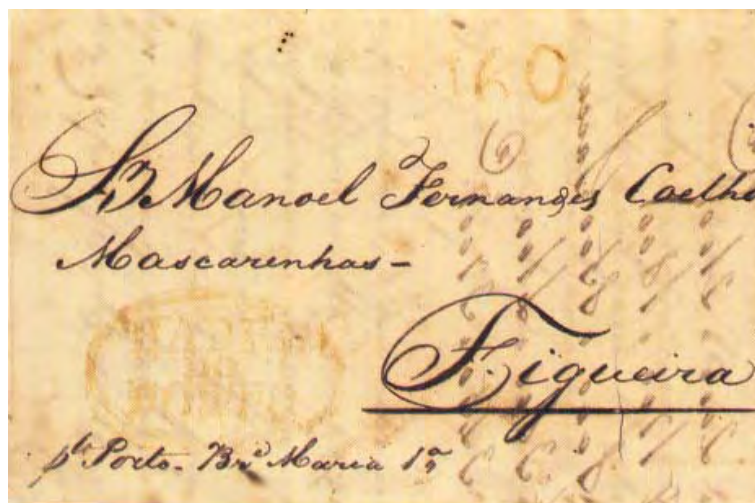 160
Sr. Manoel Fernandes Coelho
Mascarenhas -
Figueira
pr. Porto - Bre. Maria 1ª